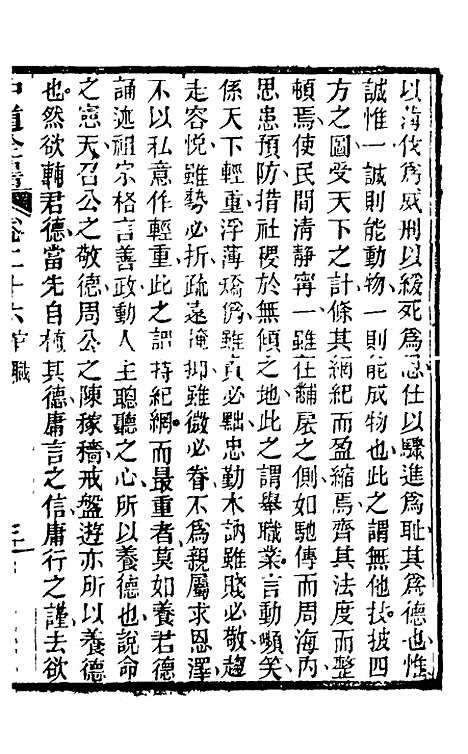 以海伐為威刑以緩死為恩仕以驟進為耻其為德也惟
誠惟一誠則能動物一則能成物也此之謂無他技披四
方之圖受天下之計條其綱紀而盈縮焉齊其法度而整
頓焉使民間清靜寧一雖在黼扆之側如馳傳而周海內
思患預防措社稷於無傾之地此之謂舉職業言動嚬笑
係天下輕重浮薄矯僞雖貴必黜忠勤木訥雖賤必敬趨
走容悅雖勢必折疏遠掩抑雖微必眷不為親屬求恩澤
不以私意作輕重此之謂持紀綱而最重者莫如養君德
誦述祖宗格言善政動人主聰聽之心所以養德也說命
之憲天召公之敬德周公之陳稼穡戒盤遊亦所以養德
也然欲輔君德當先自植其德庸言之信庸行之謹去欲
卷二十六 官職